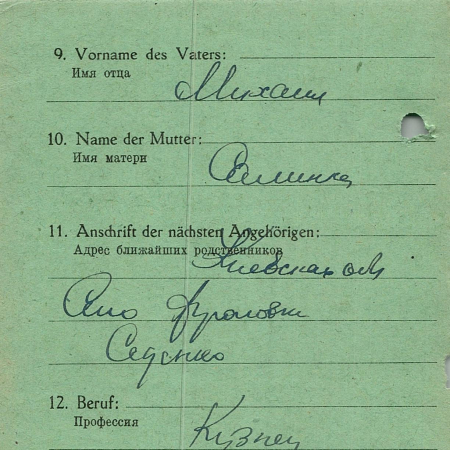 9. Vorname des Vaters:
Имя отца
Михаил
10. Name der Mutter:
Имя матери
11. Anschrift der nächsten Angehörigen:
Адрес ближайших родственников
Киевская обл
12. Beruf:
Профессия
Кузнец